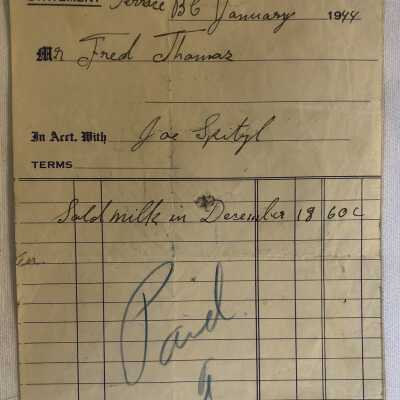 STATEMENT Terrace BC January 1944
Mr Fred Thomas
In Acct. With Joe Spitzl
TERMS
Sold milk in December 18 60c
Paid